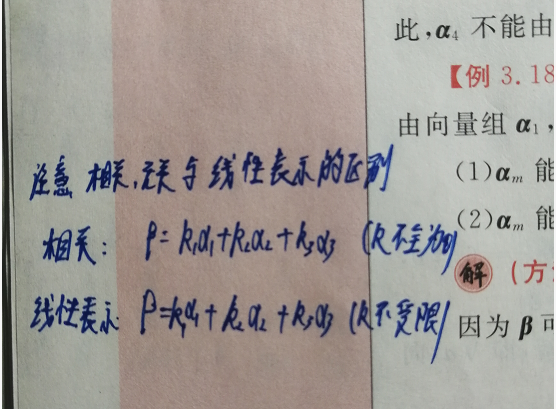 此,α₄ 不能由
【例 3.18
由向量组 α₁,
(1) αₘ 能
(2) αₘ 能
解 (方
因为 β 可
注意 相关,无关与线性表示的区别
相关: β=k₁α₁+k₂α₂+k₃α₃ (k不全为0)
线性表示 β=k₁α₁+k₂α₂+k₃α₃ (k不受限)